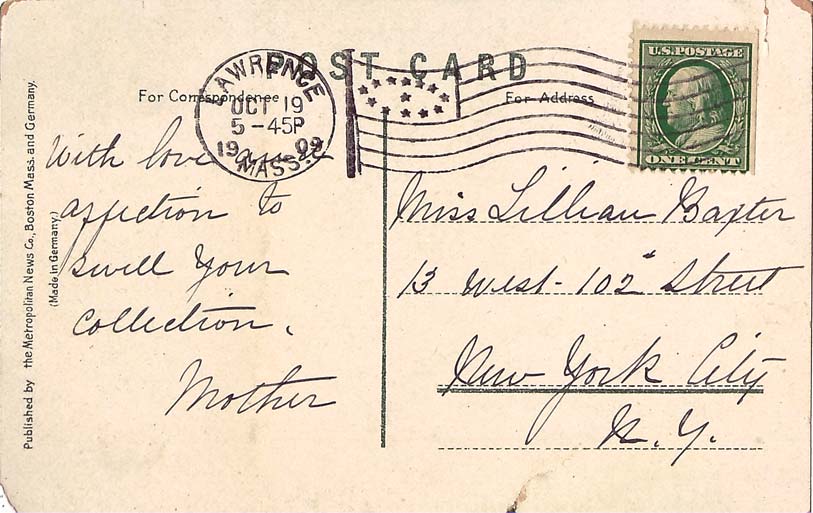 POST CARD
For Correspondence
For Address
LAWRENCE
OCT 19
5-45P
1909
MASS.
U.S. POSTAGE
ONE CENT
With love and
affection to
swell your
collection.
Mother
Miss Lillian Baxter
13 West- 102d Street
New York City
N. Y.
Published by the Metropolitan News Co., Boston Mass. and Germany.
(Made in Germany.)